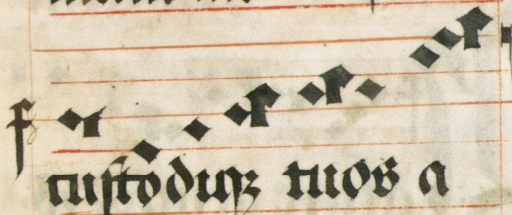 custoduqꝫ tuos a